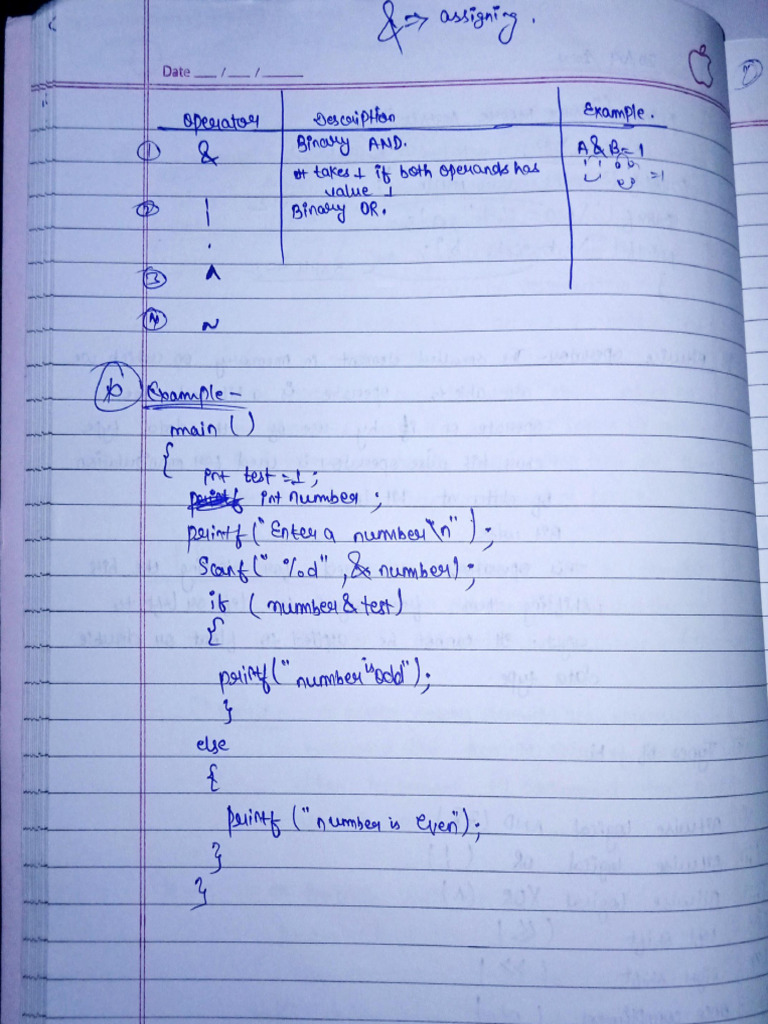 & → assigning.
Date __ / __ / ____
Operator Description Example.
① & Binary AND. A & B = 1
takes 1 if both operands has
value 1
=1
② | Binary OR.
③ ^
④ ~
Example -
main ()
{
int test = 1;
int number;
printf("Enter a number \n");
Scanf("%d", & number);
if (number & test)
{
printf("number is odd");
}
else
{
printf("number is even");
}
}